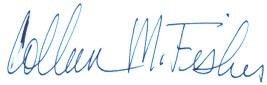 Colleen M. Fisher